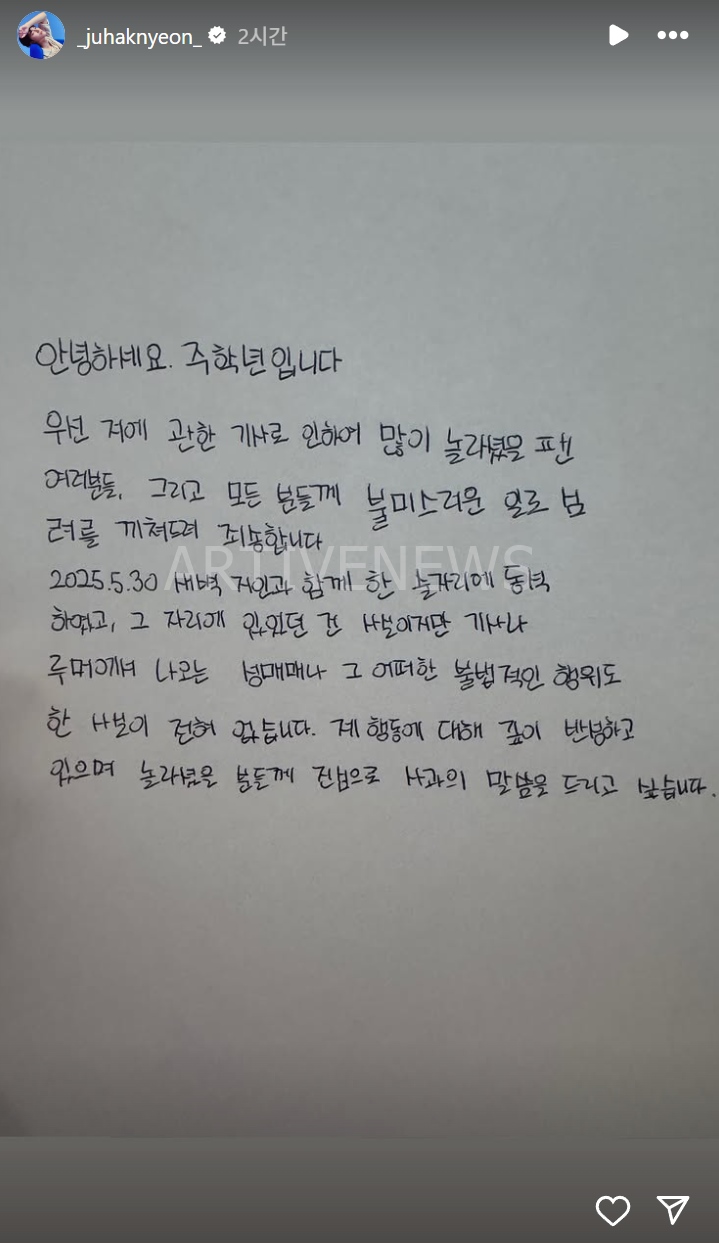 _juhaknyeon_ 2시간
안녕하세요. 주학년입니다
우선 저에 관한 기사로 인하여 많이 놀라셨을 팬
여러분들, 그리고 모든 분들께 불미스러운 일로 심
려를 끼쳐드려 죄송합니다
ARTIVENEWS
2025.5.30 새벽 지인과 함께 한 술자리에 동석
하였고, 그 자리에 있었던 건 사실이지만 기사나
루머에서 나오는 성매매나 그 어떠한 불법적인 행위도
한 사실이 전혀 없습니다. 제 행동에 대해 깊이 반성하고
있으며 놀라셨을 분들께 진심으로 사과의 말씀을 드리고 싶습니다.